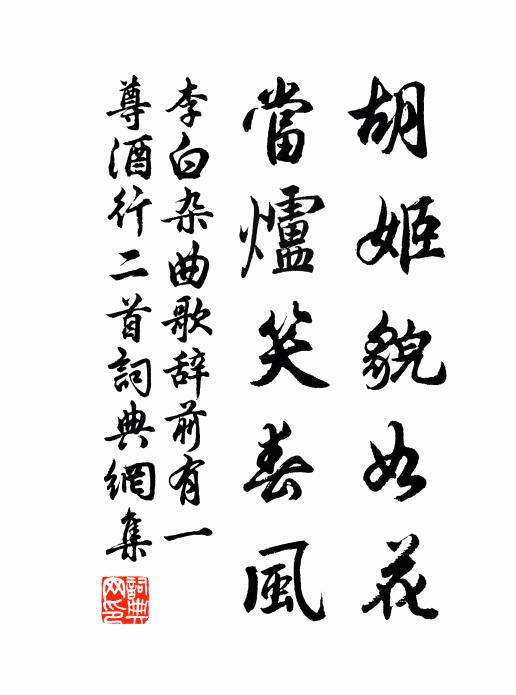 胡姬貌如花
當爐笑春風
李白杂曲歌辞前有一
尊酒行二首詞典網集
詞典
网印